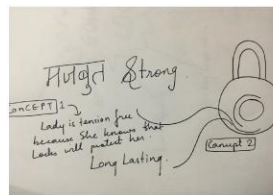 मजबुत Strong
CONCEPT 1
Lady is tension free
because She knows that
Locks will protect her.
Long Lasting.
Concept 2